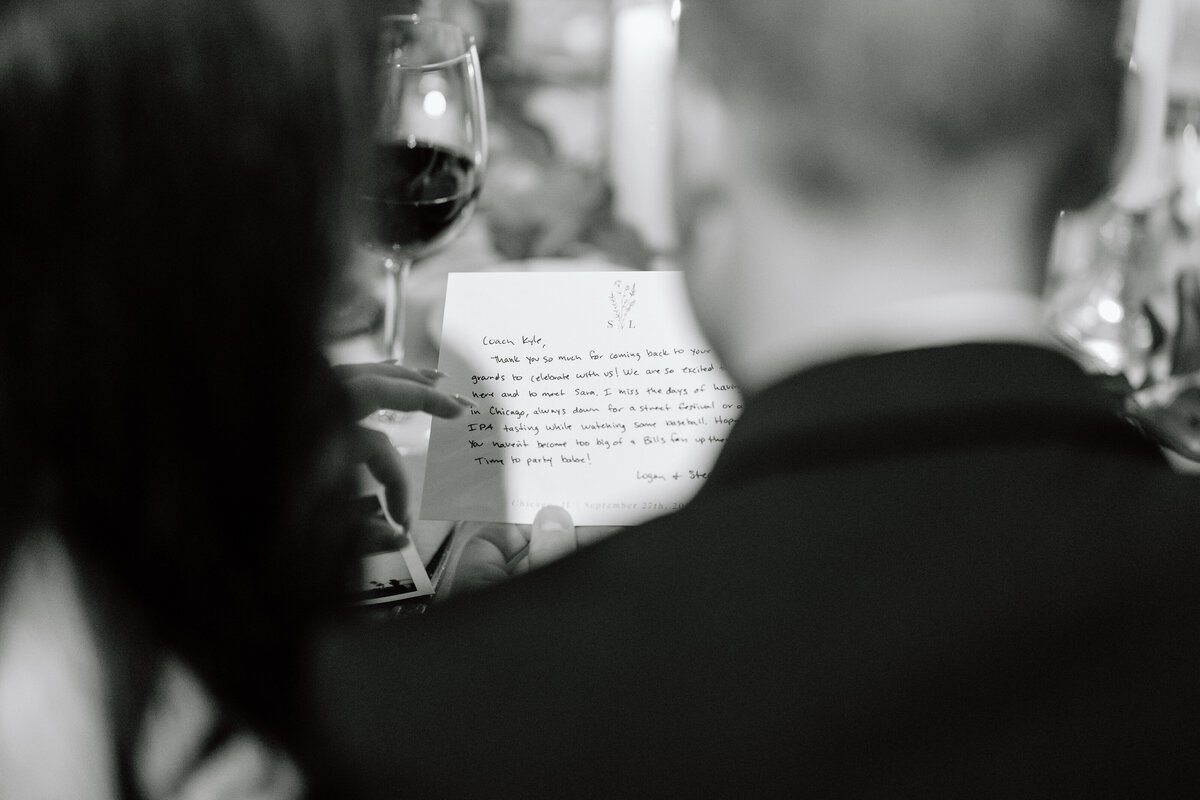 S L
Coach Kyle,
Thank you so much for coming back to your
grounds to celebrate with us! We are so excited
here and to meet Sara. I miss the days of
in Chicago, always down for a street festival or
IPA tasting while watching some baseball.
you haven't become too big of a Bills fan up
Time to party babe!
Logan +
Chicago, IL | September 27th,